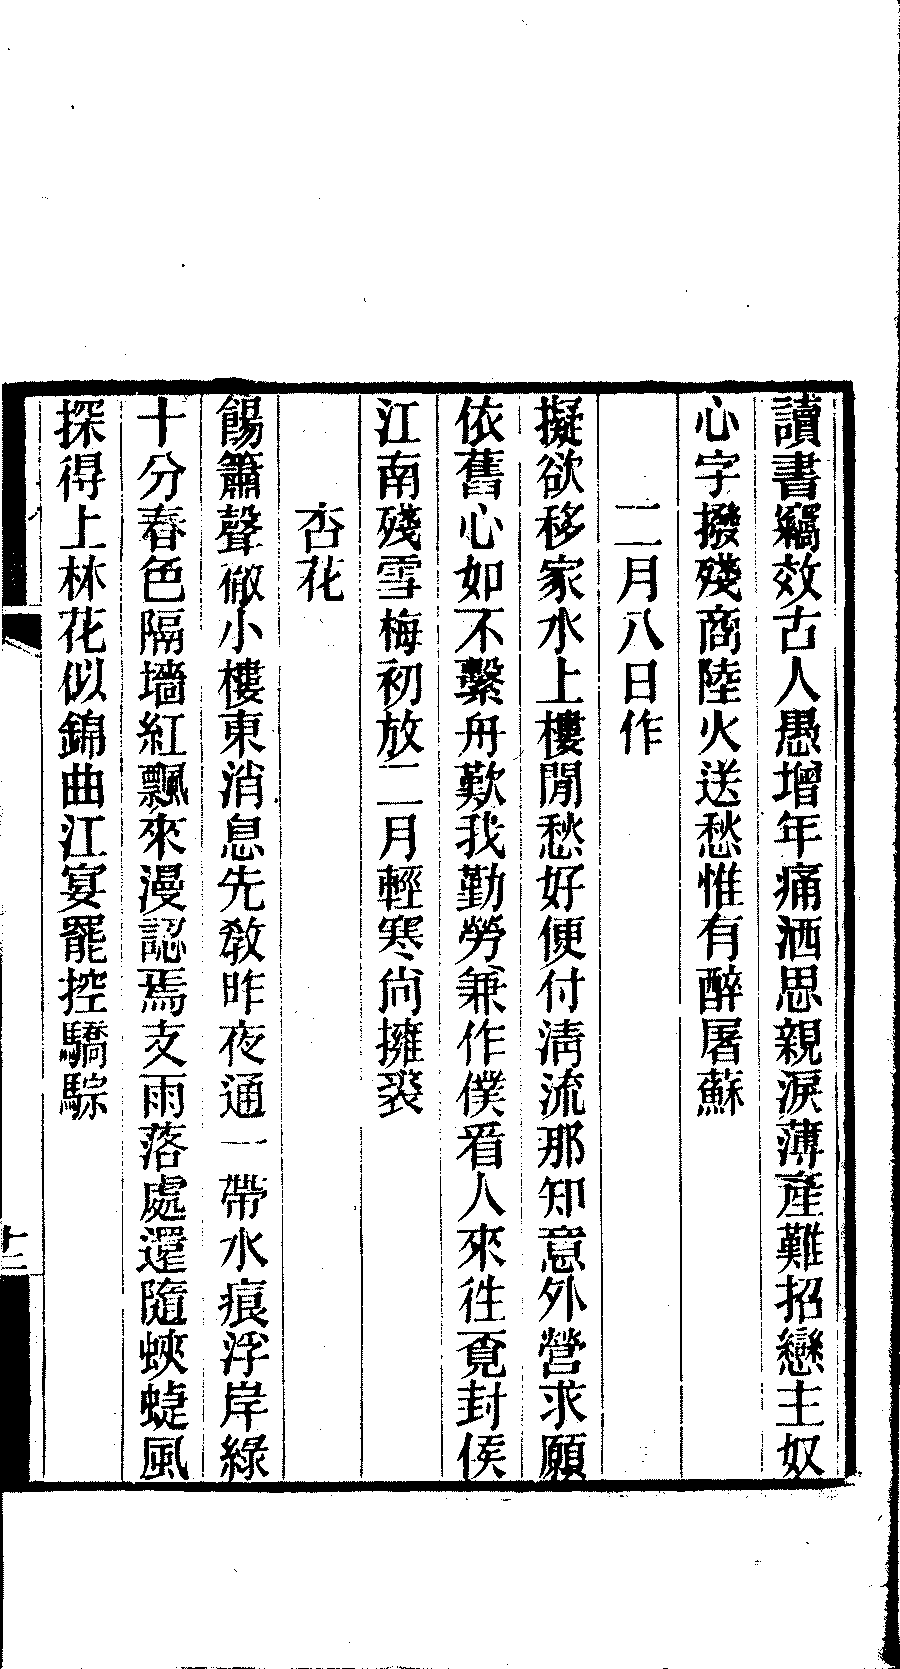 讀書竊效古人愚增年痛洒思親淚薄產難招戀主奴
心字撥殘商陸火送愁惟有醉屠蘇
二月八日作
擬欲移家水上樓閒愁好便付淸流那知意外營求願
依舊心如不繫舟歎我勤勞兼作僕看人來徃覓封侯
江南殘雪梅初放二月輕寒尙擁裘
杏花
餳簫聲徹小樓東消息先敎昨夜通一帶水痕浮岸綠
十分春色隔墻紅飄來漫認焉支雨落處還隨蛺蜨風
探得上林花似錦曲江宴罷控驕騌
十二